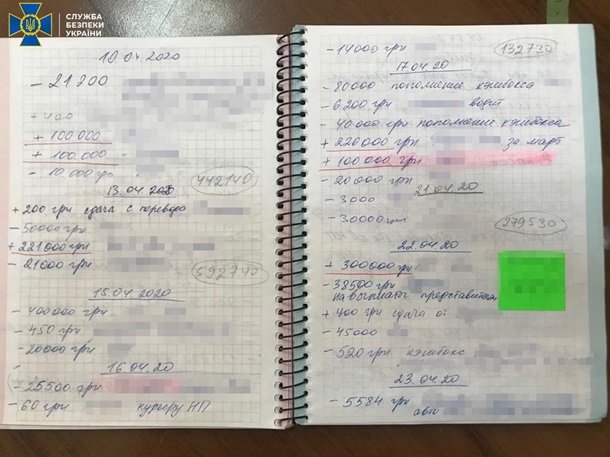 СЛУЖБА
БЕЗПЕКИ
УКРАЇНИ
10.04.2020
- 21200
+ 400
+ 100 000
+ 100 000 -
- 10 000 грн
442140
13.04.2020
+ 200 грн сдача с перевода
- 50000 грн
+ 221 000 грн
- 21000 грн
592740
15.04.2020
- 400000 грн
- 450 грн
- 20000 грн
-
16.04.20
- 25500 грн
- 60 грн курьеру НП
- 14000 грн
132730
17.04.20
- 80000 пополнение кэшбокса
- 6200 грн водит
- 40000 грн пополнение кэшбокса
+ 226000 грн за март
+ 100 000 грн
- 20000 грн
21.04.20
- 3000
- 30000 грн
279530
22.04.20
+ 300000 грн
- 38500 грн
на выплаты
+ 400 грн сдача от
- 45000
- 520 грн кэшбокс
23.04.20
- 5584 грн
авто